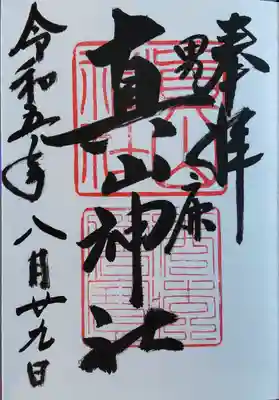 奉拝
男鹿
真山神社
令和五年
八月廿九日